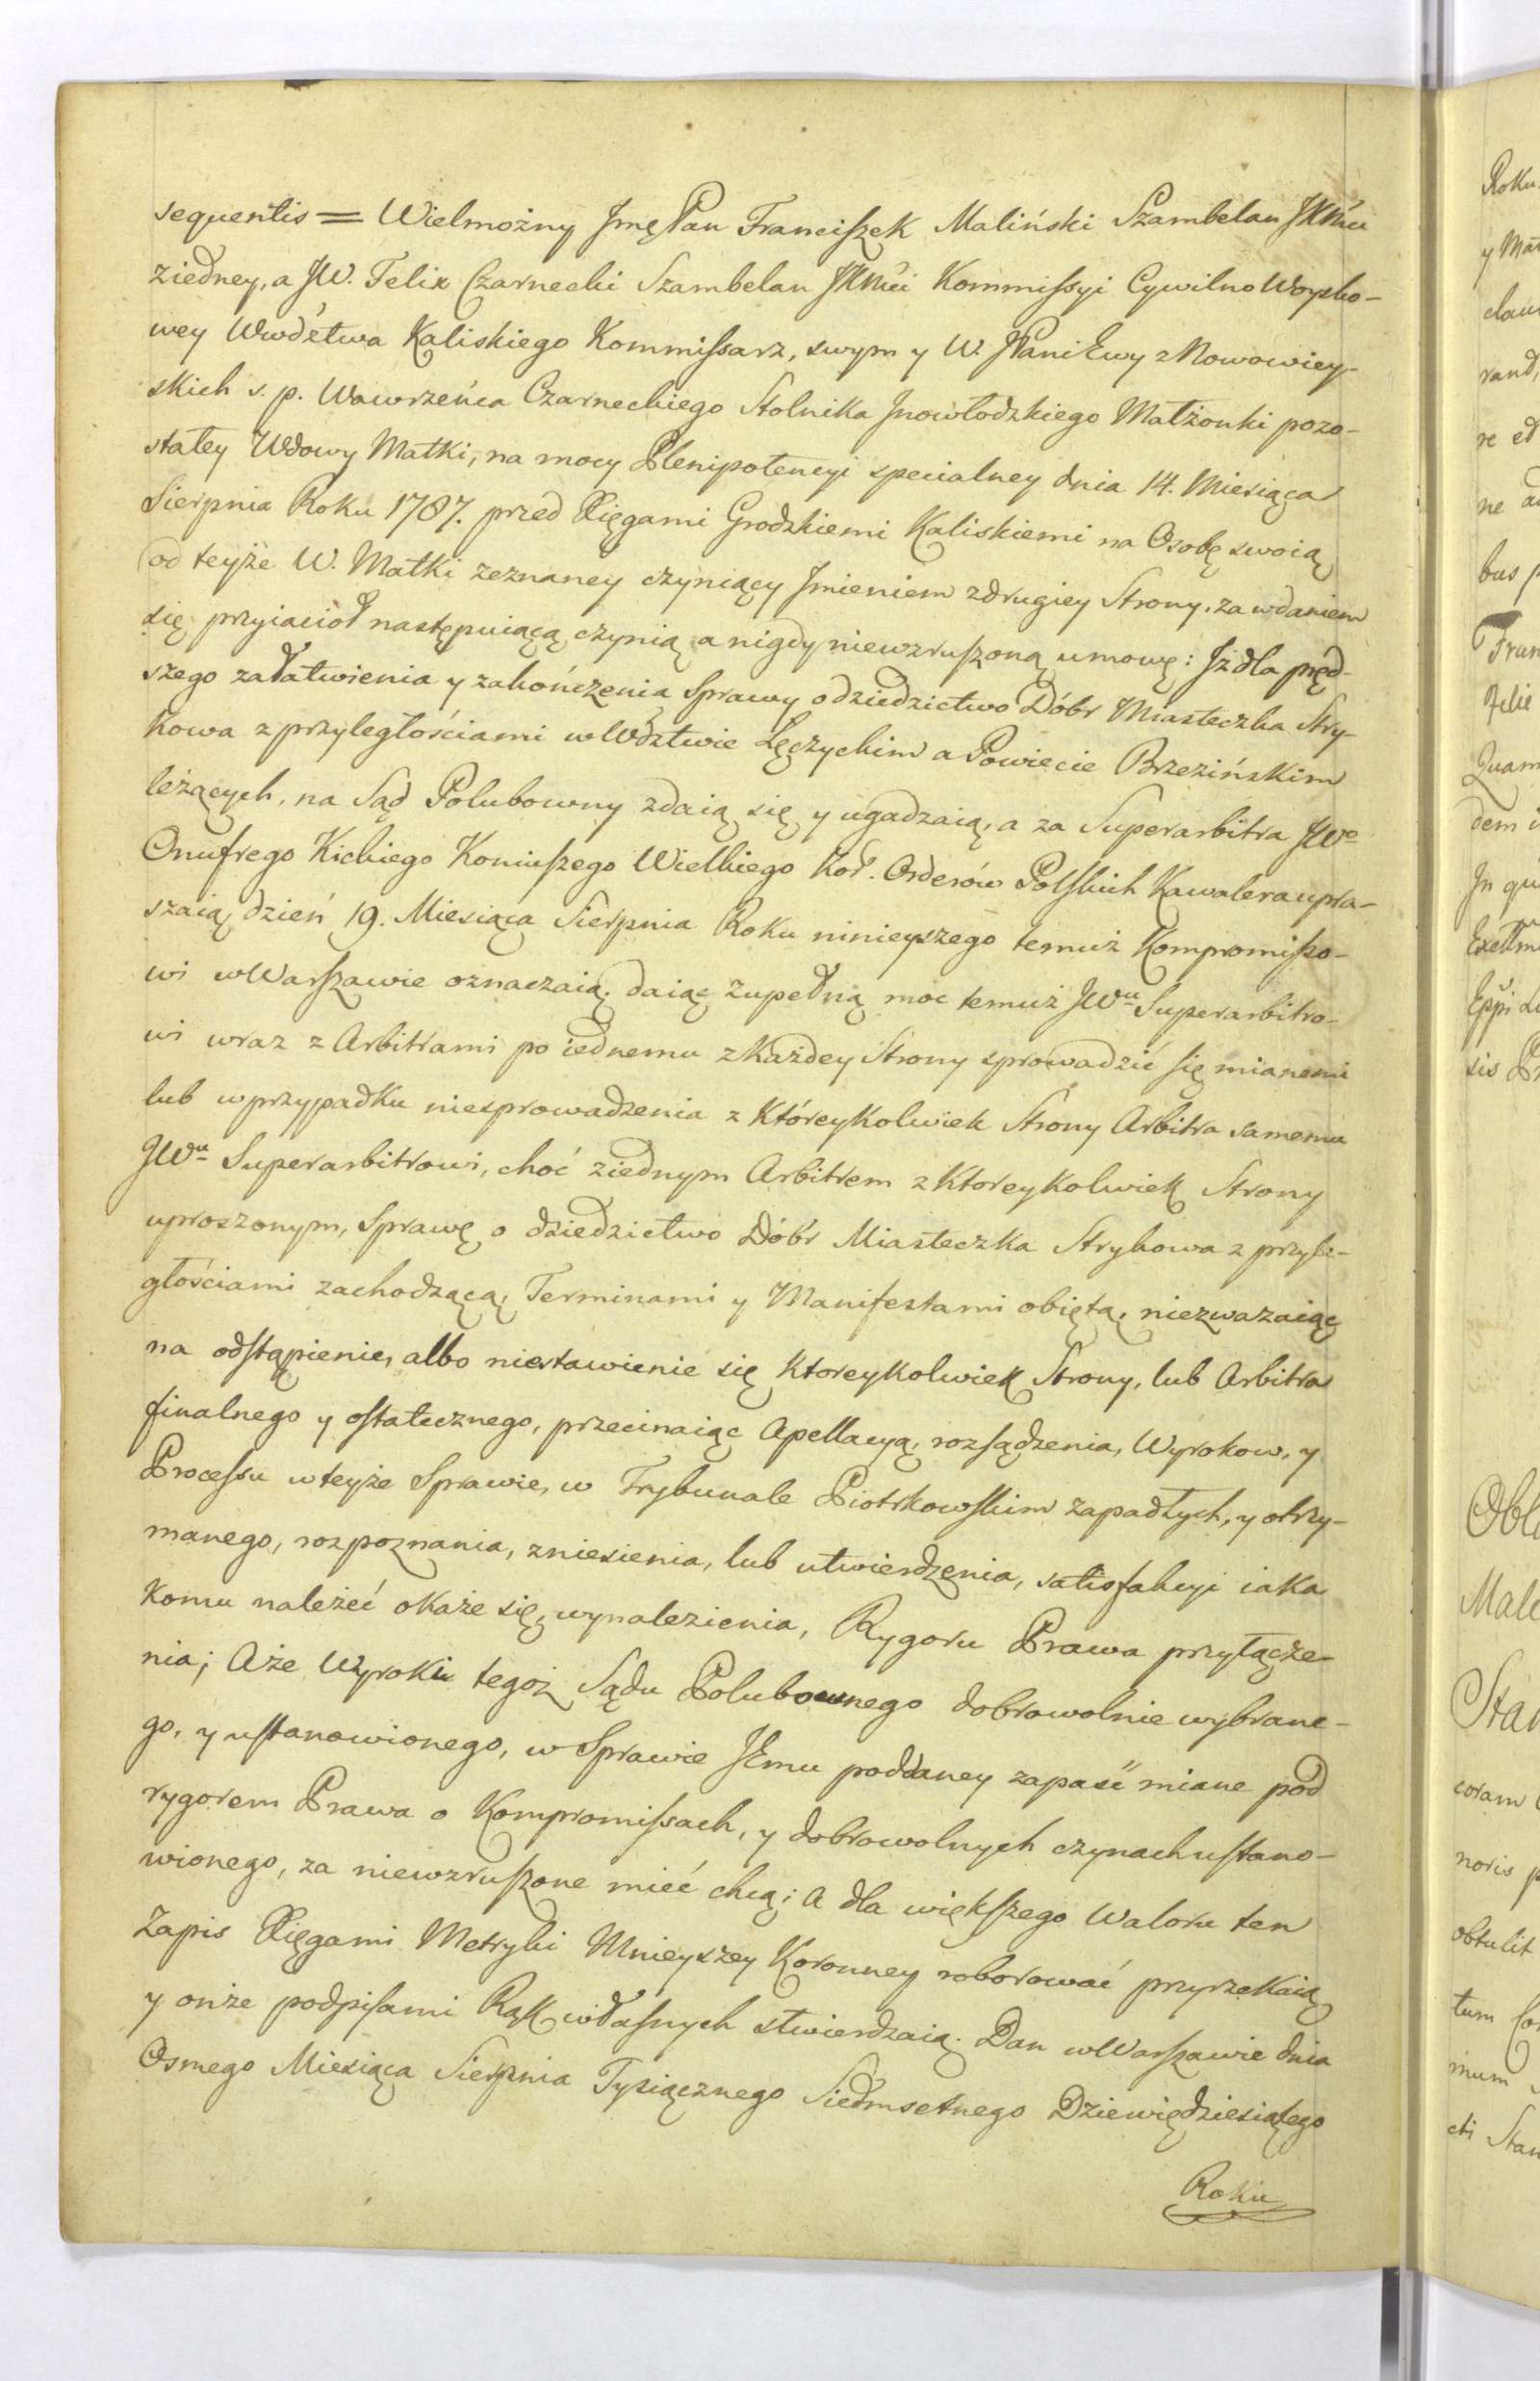 sequentis = Wielmożny Jmę Pan Franciszek Maliński Szambelan JKMci
ziedney, a JW. Felix Czarnecki Szambelan JKMci Kommissyi Cywilno Woysko-
wey Wwdztwa Kaliskiego Kommissarz, swym y W. JPani Ewy z Nowowiey-
skich ś. p. Wawrzeńca Czarneckiego Stolnika Jnowłodzkiego Małżonki pozo-
stałey Wdowy Matki, na mocy Plenipotencyi specialney dnia 14. Miesiąca
Sierpnia Roku 1787. przed Xięgami Grodzkiemi Kaliskiemi na Osobę swoią
od teyże W. Matki zeznaney czyniący Jmieniem zdrugiey Strony, za wdaniem
się przyiaciół następuiącą czynią a nigdy niewzruszoną umowę: Jż dla pręd-
szego załatwienia y zakończenia Sprawy odziedzictwo Dóbr Miasteczka Stry-
kowa z przyległościami w Wdztwie Łęczyckim a Powiecie Brzezińskim
leżących, na Sąd Polubowny zdaią się y ugadzaią, a za Superarbitra JWo
Onufrego Kickiego Koniuszego Wielkiego Kor. Orderów Polskich Kawalera upra-
szaią, dzień 19. Miesiąca Sierpnia Roku ninieyszego temuż Kompromisso-
wi w Warszawie oznaczaią, daiąc zupełną moc temuż JWu Superarbitro-
wi wraz z Arbitrami po iednemu z Każdey Strony sprowadzić się mianemi
lub w przypadku niesprowadzenia z Któreykolwiek Strony Arbitra samemu
JWu Superarbitrowi, choć ziednym Arbitrem z Ktoreykolwiek Strony
uproszonym, Sprawę o dziedzictwo Dóbr Miasteczka Strykowa z przyle-
głościami zachodzącą, Terminami y Manifestami obiętą, niezważaiąc
na odstąpienie, albo niestawienie się Ktoreykolwiek Strony, lub Arbitra
finalnego y ostatecznego, przecinaiąc Apellacyą, rozsądzenia, Wyrokow, y
Processu w teyże Sprawie, w Trybunale Piotrkowskim zapadłych, y otrzy-
manego, rozpoznania, zniesienia, lub utwierdzenia, satisfakcyi iaka
Komu należeć okaże się, wynalezienia, Rygoru Prawa przyłącze-
nia; Aże Wyroki tegoż Sądu Polubownego dobrowolnie wybrane-
go, y ustanowionego, w Sprawie Jemu poddaney zapaść miane pod
rygorem Prawa o Kompromissach, y dobrowolnych czynach ustano-
wionego, za niewzruszone mieć chcą; A dla większego Waloru ten
Zapis Xięgami Metryki Mnieyszey Koronney roborować przyrzekaią
y onże podpisami Rąk własnych stwierdzaią. Dan w Warszawie dnia
Osmego Miesiąca Sierpnia Tysiącznego Siedmsetnego Dziewiędziesiątego
Roku